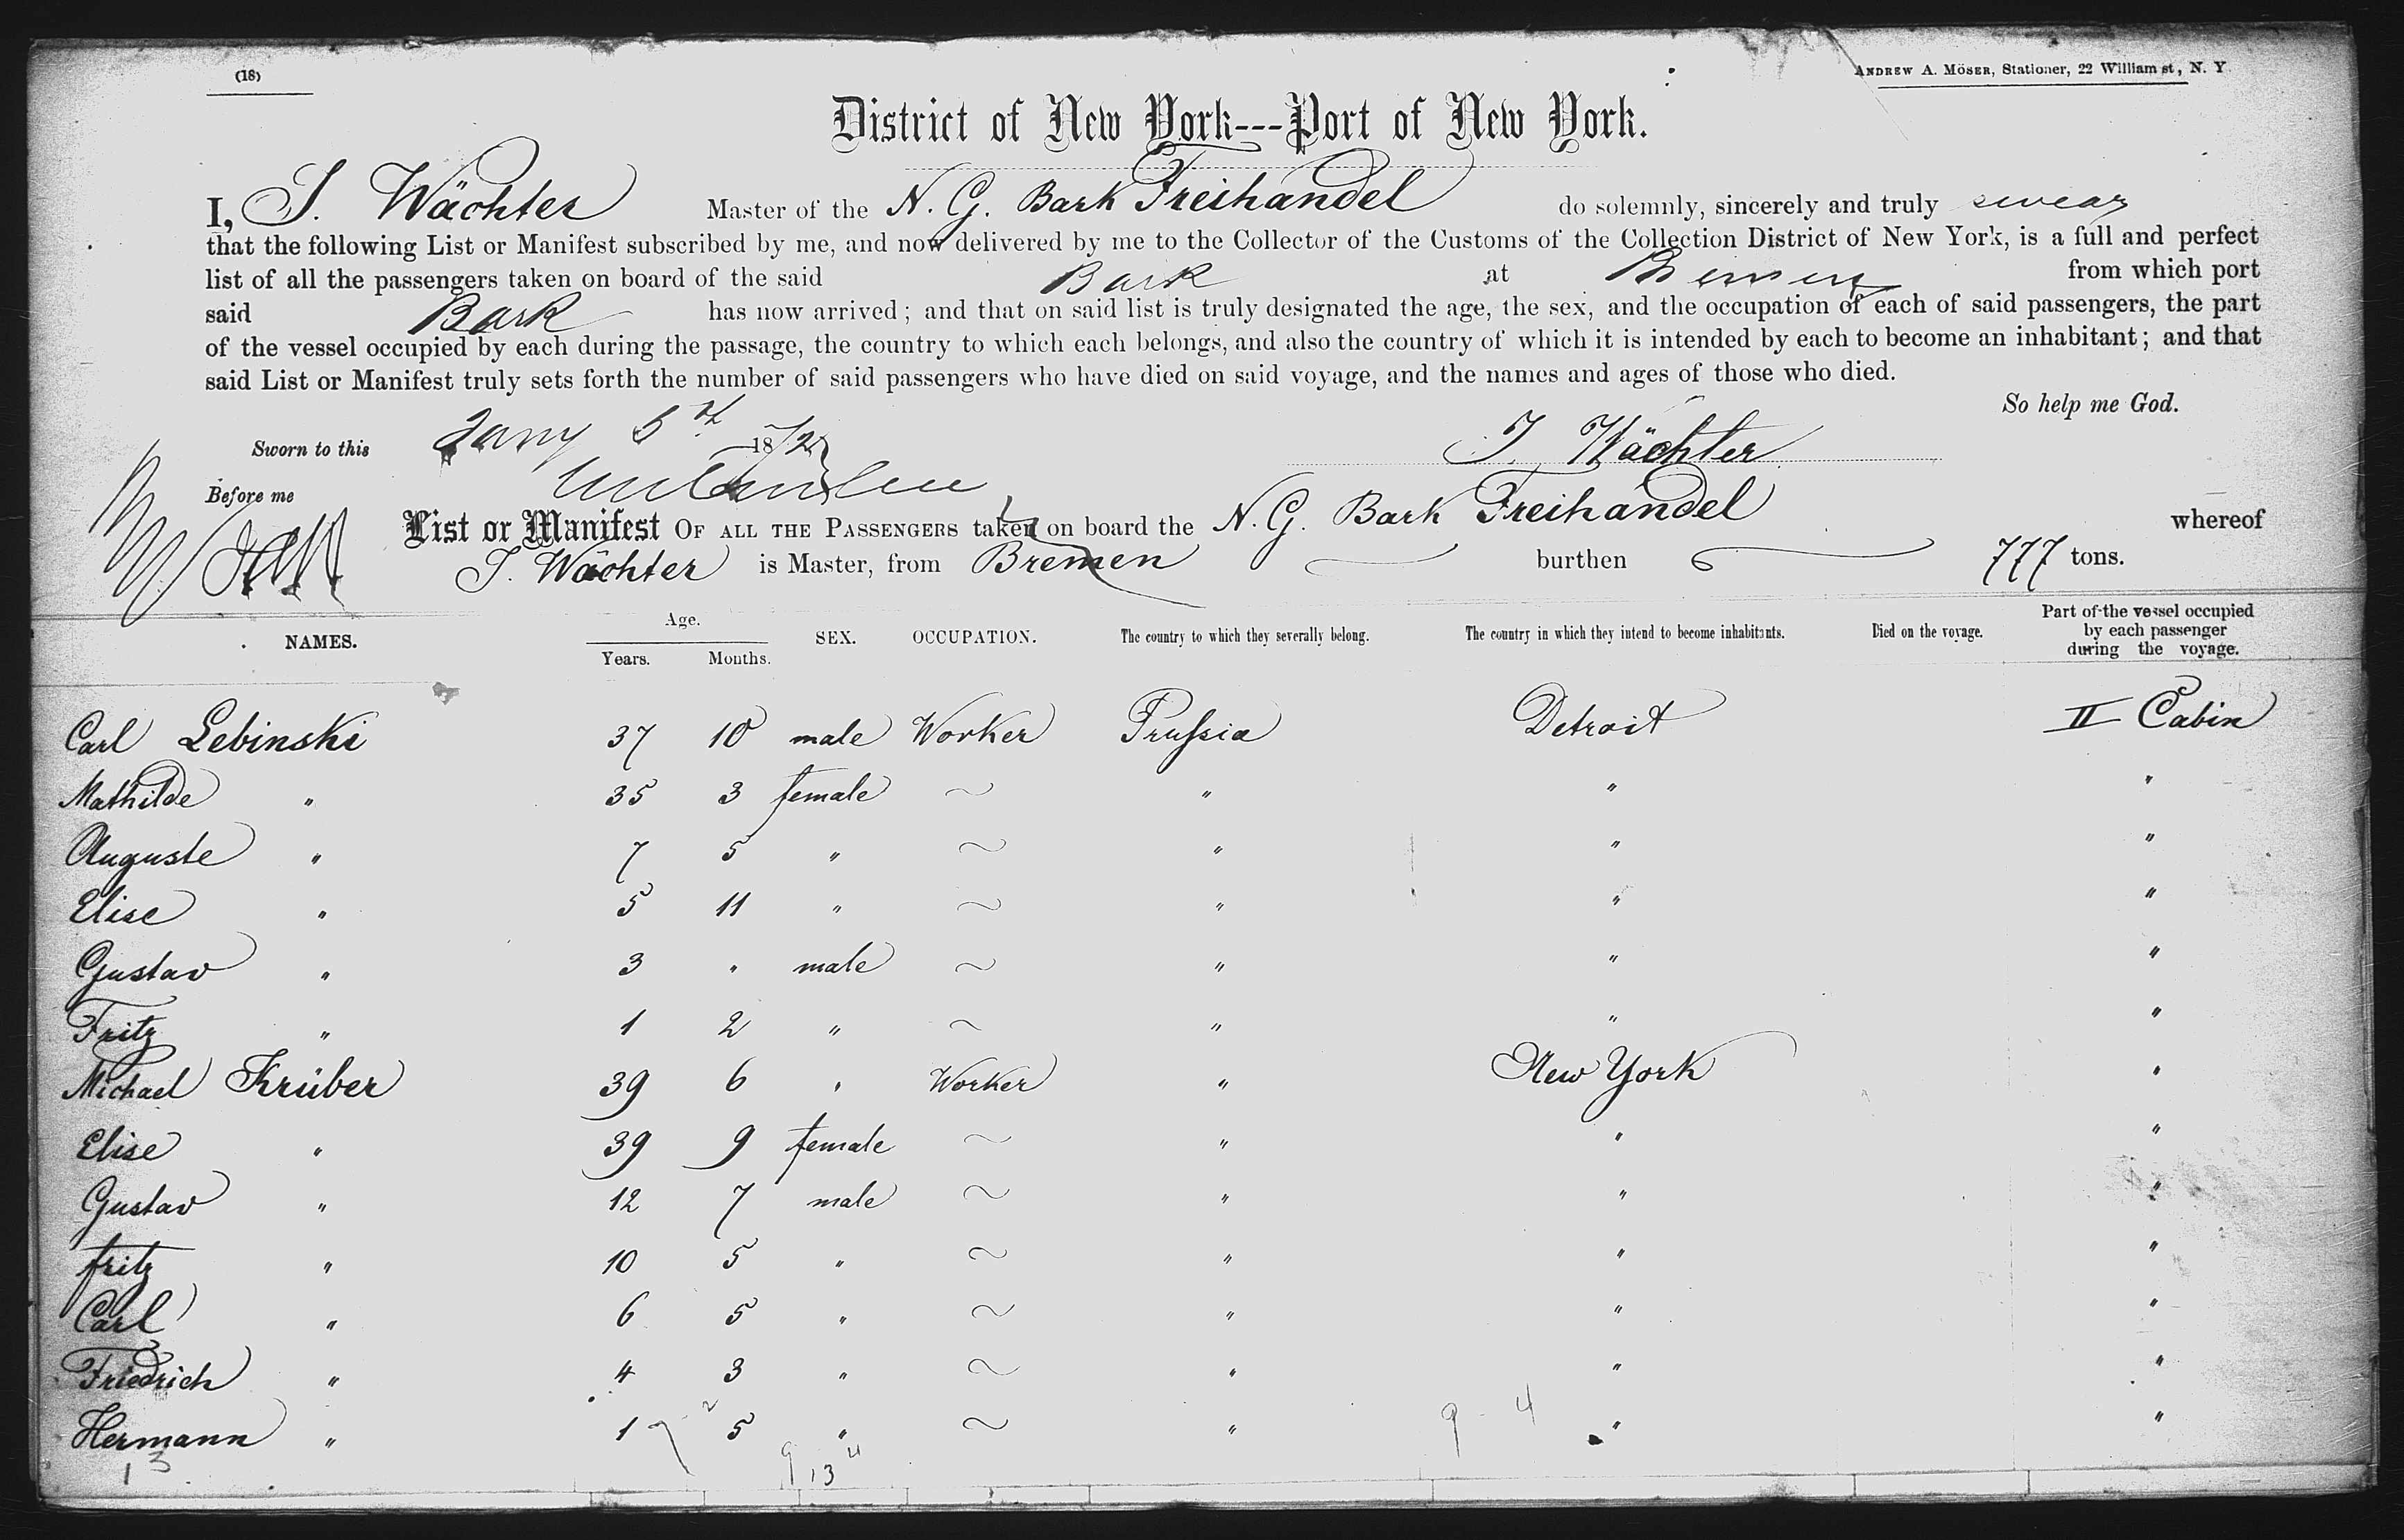 (18)
ANDREW A. MÖSER, Stationer, 22 William st, N. Y
District of New York---Port of New York.
I, S. Wächter Master of the N. G. Bark Freihandel do solemnly, sincerely and truly swear
that the following List or Manifest subscribed by me, and now delivered by me to the Collector of the Customs of the Collection District of New York, is a full and perfect
list of all the passengers taken on board of the said Bark at Bremen from which port
said Bark has now arrived; and that on said list is truly designated the age, the sex, and the occupation of each of said passengers, the part
of the vessel occupied by each during the passage, the country to which each belongs, and also the country of which it is intended by each to become an inhabitant; and that
said List or Manifest truly sets forth the number of said passengers who have died on said voyage, and the names and ages of those who died.
So help me God.
Sworn to this Jany 5th 1872
J. Wächter
Before me
List or Manifest OF ALL THE PASSENGERS taken on board the N. G. Bark Freihandel whereof
J. Wächter is Master, from Bremen burthen 777 tons.
NAMES. Age. Years. Months. SEX. OCCUPATION. The country to which they severally belong. The country in which they intend to become inhabitants. Died on the voyage. Part of the vessel occupied by each passenger during the voyage.
Carl Lebinski 37 10 male Worker Prussia Detroit II Cabin
Mathilde " 35 3 female ~ " " "
Auguste " 7 5 " ~ " " "
Elise " 5 11 " ~ " " "
Gustav " 3 " male ~ " " "
Fritz " 1 2 " ~ " " "
Michael Krüber 39 6 " Worker " New York "
Elise " 39 9 female ~ " " "
Gustav " 12 7 male ~ " " "
Fritz " 10 5 " ~ " " "
Carl " 6 5 " ~ " " "
Friedrich " 4 3 " ~ " " "
Hermann " 1 5 " ~ " " "
9 - 4
13
9 13 4